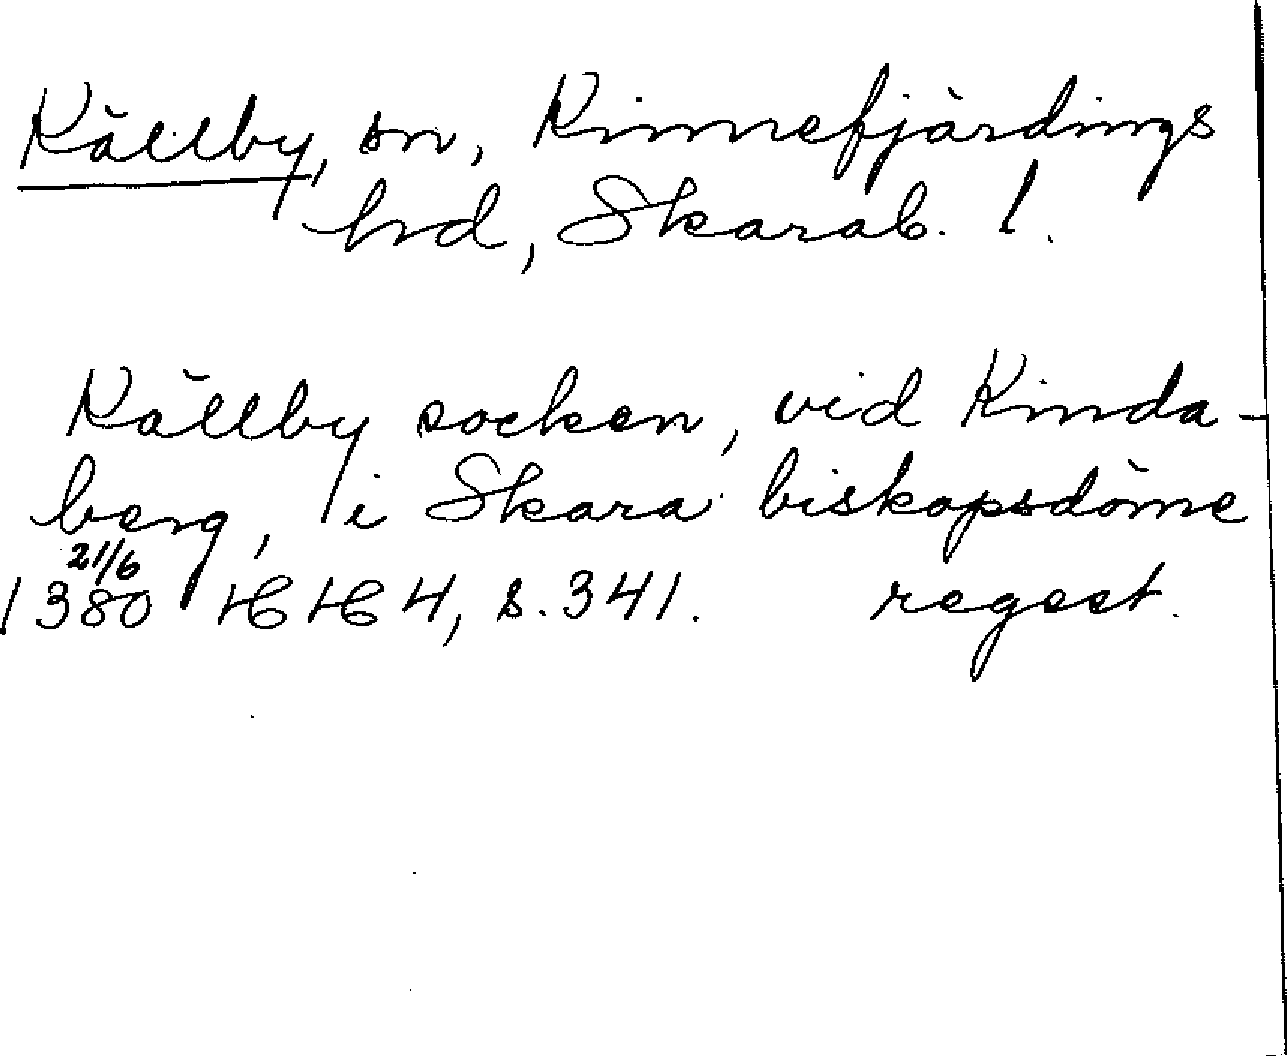 Källby, sn, Kinnefjärdings
hd, Skarab. l.
Källby socken, vid Kinda-
berg, i Skara biskopsdöme
21/6
1380 HH 4, s. 341. regest.